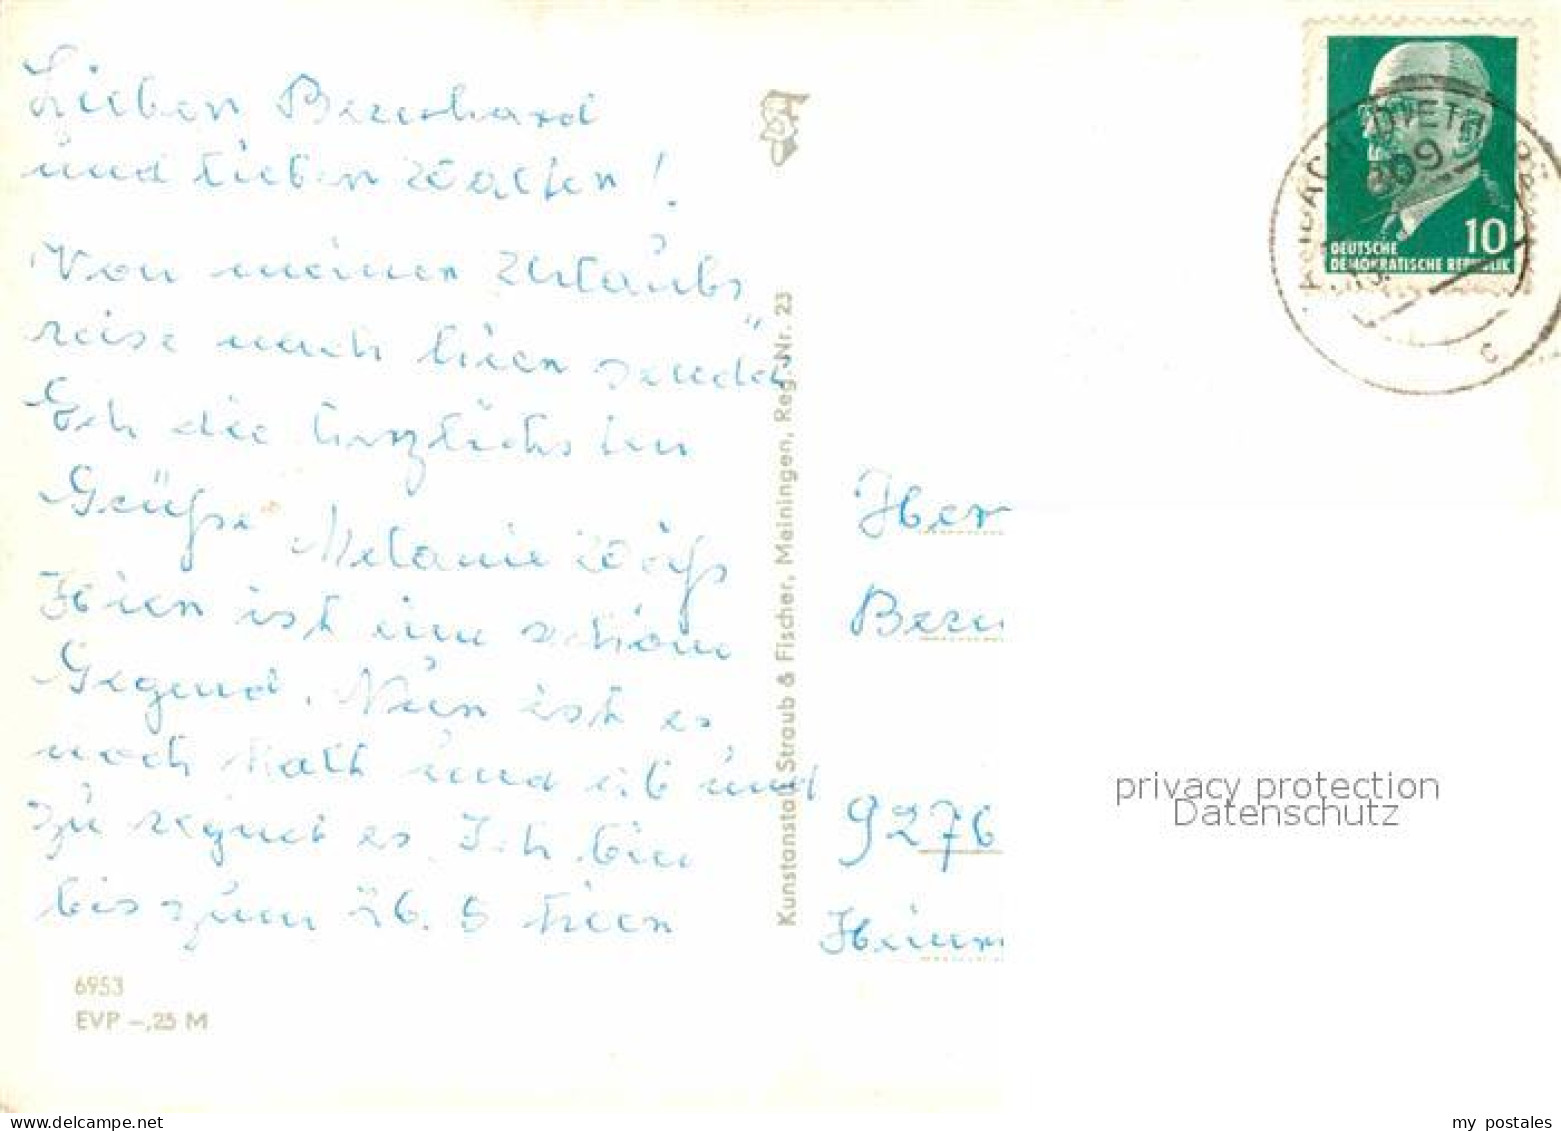 Lieber Bernhard
und lieber Walter!
Von meiner Urlaubs
reise nach hier sende
Ech die herzlichsten
Grüße Melanie Weiß
Hier ist eine schöne
Gegend. Nur ist es
noch kalt und ab und
zu regnet es. Ich bin
bis zum 26. 5 hier
6953
EVP -,25 M
Kunstanstalt Straub & Fischer, Meiningen, Reg.-Nr. 23
10
DEUTSCHE
DEMOKRATISCHE REPUBLIK
609
c
Her
Bern
9276
privacy protection
Datenschutz
my postales